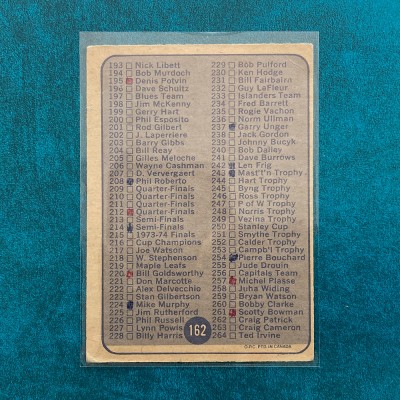 193 Nick Libett
194 Bob Murdoch
195 Denis Potvin
196 Dave Schultz
197 Blues Team
198 Jim McKenny
199 Gerry Hart
200 Phil Esposito
201 Rod Gilbert
202 J. Laperriere
203 Barry Gibbs
204 Bill Reay
205 Gilles Meloche
206 Wayne Cashman
207 D. Ververgaert
208 Phil Roberto
209 Quarter-Finals
210 Quarter-Finals
211 Quarter-Finals
212 Quarter-Finals
213 Semi-Finals
214 Semi-Finals
215 1973-74 Finals
216 Cup Champions
217 Joe Watson
218 W. Stephenson
219 Maple Leafs
220 Bill Goldsworthy
221 Don Marcotte
222 Alex Delvecchio
223 Stan Gilbertson
224 Mike Murphy
225 Jim Rutherford
226 Phil Russell
227 Lynn Powis
228 Billy Harris
229 Bob Pulford
230 Ken Hodge
231 Bill Fairbairn
232 Guy LaFleur
233 Islanders Team
234 Fred Barrett
235 Rogie Vachon
236 Norm Ullman
237 Garry Unger
238 Jack Gordon
239 Johnny Bucyk
240 Bob Dailey
241 Dave Burrows
242 Len Frig
243 Mast'n Trophy
244 Hart Trophy
245 Byng Trophy
246 Ross Trophy
247 P of W Trophy
248 Norris Trophy
249 Vezina Trophy
250 Stanley Cup
251 Smythe Trophy
252 Calder Trophy
253 Campb'l Trophy
254 Pierre Bouchard
255 Jude Drouin
256 Capitals Team
257 Michel Plasse
258 Juha Widing
259 Bryan Watson
260 Bobby Clarke
261 Scotty Bowman
262 Craig Patrick
263 Craig Cameron
264 Ted Irvine
162
O.P.C. PTD. IN CANADA